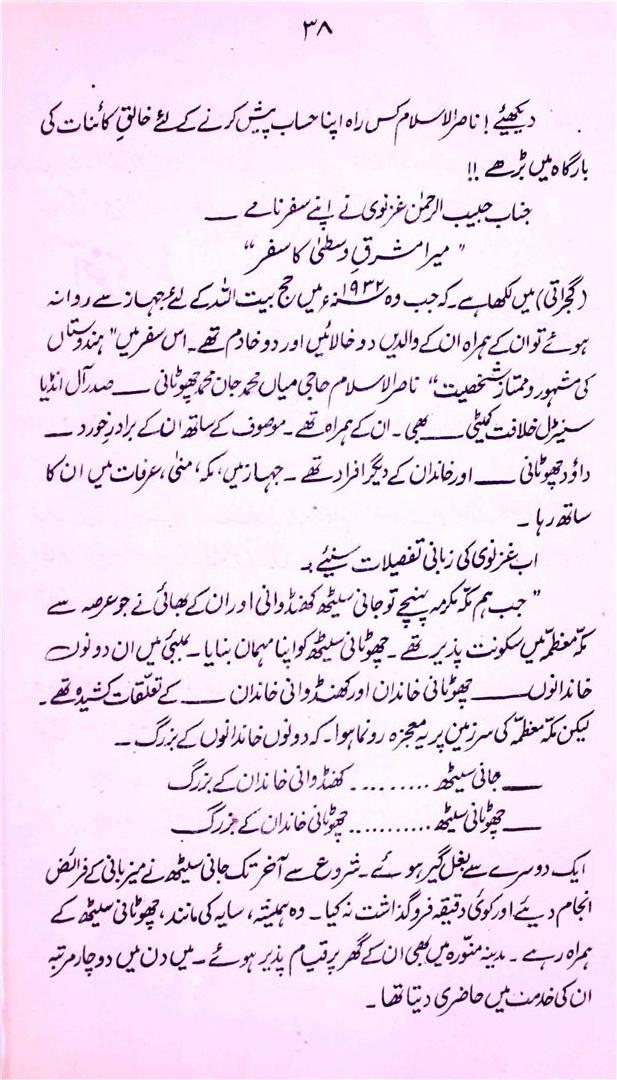 ۳۸
دیکھئیے! ناصر الاسلام کس راہ اپنا حساب پیش کرنے کے لئے خالقِ کائنات کی
بارگاہ میں بڑھے !!
جناب حبیب الرحمٰن غزنوی نے اپنے سفرنامے ــــ
" میرا مشرقِ وسطیٰ کا سفر "
(گجراتی) میں لکھا ہے ۔ کہ جب وہ ۱۹۳۲ء میں حج بیت اللہ کے لئے جہاز سے روانہ
ہوئے تو ان کے ہمراہ ان کے والدین دو خالائیں اور دو خادم تھے ۔ اس سفر میں " ہندوستاں
کی مشہور و ممتاز شخصیت " ناصر الاسلام حاجی میاں محمد جان محمد چھوٹانی ــــ صدر آل انڈیا
سنیٹرل خلافت کمیٹی ــــ بھی ۔ ان کے ہمراہ تھے ۔ موصوف کے ساتھ ان کے برادرِ خورد ــــ
داؤد چھوٹانی ــــ اور خاندان کے دیگر افراد تھے ۔ جہاز میں، مکہ، منیٰ، عرفات میں ان کا
ساتھ رہا ۔
اب غزنوی کی زبانی تفصیلات سنیئے :۔
" جب ہم مکہ مکرمہ پہنچے تو جانی سیٹھ کھنڈوانی اور ان کے بھائی نے جو عرصہ سے
مکّہ معظمّہ میں سکونت پذیر تھے ۔ چھوٹانی سیٹھ کو اپنا مہمان بنایا ۔ بمبئی میں ان دونوں
خاندانوں ــــ چھوٹانی خاندان اور کھنڈوانی خاندان ــــ کے تعلقات کشیدہ تھے ۔
لیکن مکّہ معظمّہ کی سرزمین پر یہ معجزہ رونما ہوا ۔ کہ دونوں خاندانوں کے بزرگ ۔۔
ــــ جانی سیٹھ ......... کھنڈوانی خاندان کے بزرگ
ــــ چھوٹانی سیٹھ ........... چھوٹانی خاندان کے بزرگ
ایک دوسرے سے بغل گیر ہوئے ۔ شروع سے آخر تک جانی سیٹھ نے میزبانی کے فرائض
انجام دیئے اور کوئی دقیقہ فروگذاشت نہ کیا ۔ وہ ہمیشہ، سایہ کی مانند، چھوٹانی سیٹھ کے
ہمراہ رہے ۔ مدینہ منوّرہ میں بھی ان کے گھر پر قیام پذیر ہوئے ۔ میں دن میں دو چار مرتبہ
ان کی خدمت میں حاضری دیتا تھا ۔